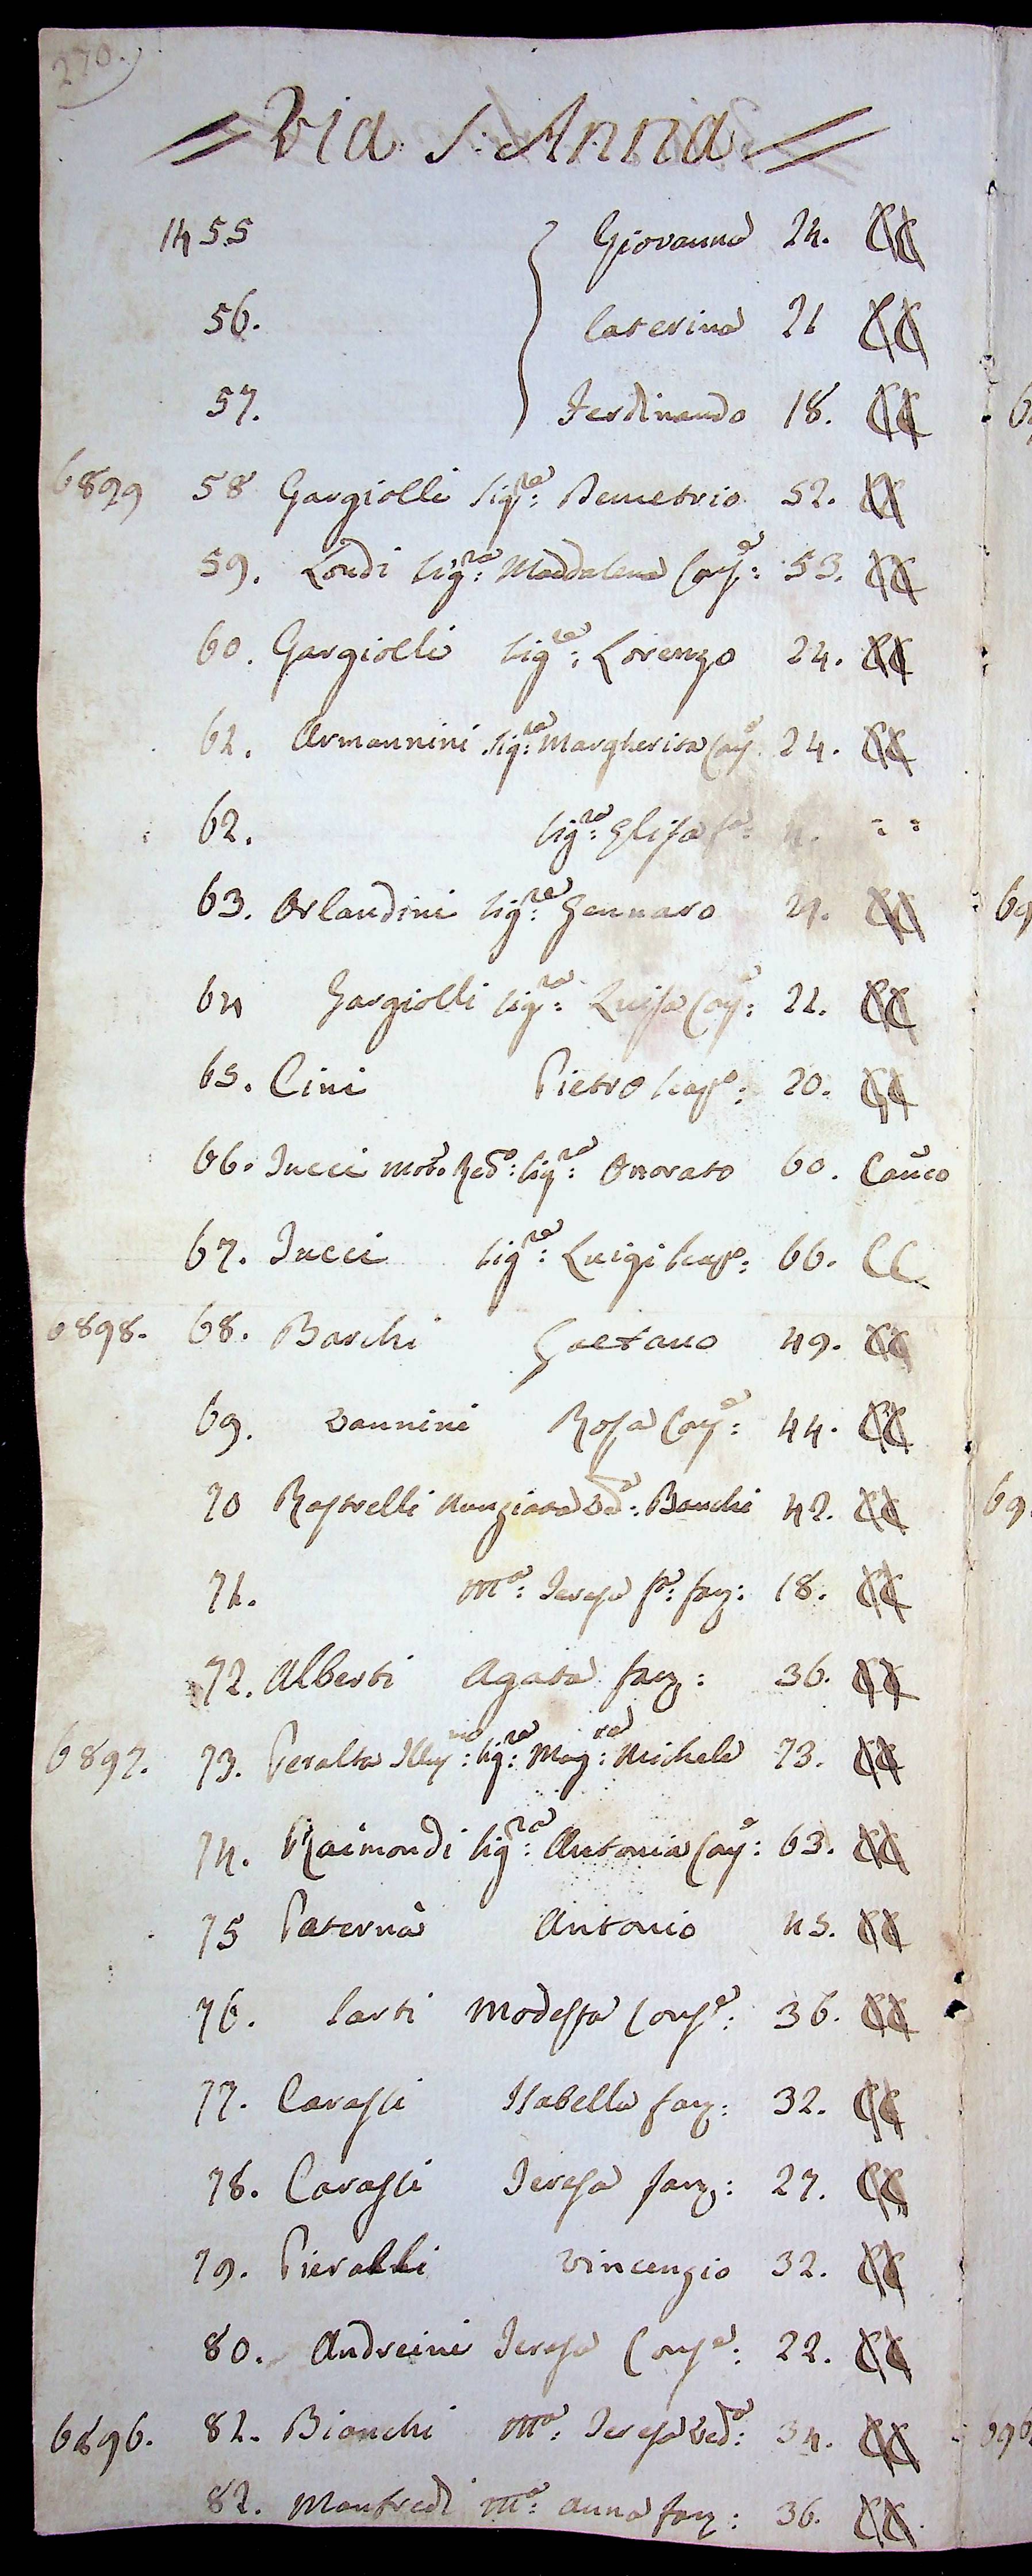 270.
= Via S. Anna =
1455 Giovanna 24. CC
56. Caterina 21 CC
57. Ferdinando 18. CC
6899 58 Gargiolli Sig.re: Demetrio 52. CC
59. Londi Sig.ra: Maddalena Con.e: 53. CC
60. Gargiolli Sig.re: Lorenzo 24. CC
61. Armannini Sig.ra: Margherita Con.e 24. CC
62. Sig.ra: Elisa fa:
63. Orlandini Sig.re: Gennaro 29. CC
64 Gargiolli Sig.ra: Luisa Con.e: 21. CC
65. Cini Pietro scap.o: 20. CC
66. Jucci Mol.o Red.o: Sig.re: Onorato 60. Can.co
67. Jucci Sig.re: Luigi scap.o: 66. CC
6898. 68. Barchi Gaetano 49. CC
69. Vannini Rosa Con.e: 44. CC
70 Rastrelli Nunziata Ved.a: Banchi 42. CC
71. M.a: Teresa fa: fan: 18. CC
72. Alberti Agata fan: 36. CC
6897. 73. Peralta Ill.mo: Sig.re: Mag.re: Michele 73. CC
74. Raimondi Sig.ra: Antonia Con.e: 63. CC
75 Paternà Antonio 45. CC
76. Sarti Modesta Cons.e: 36. CC
77. Carassi Isabella fan: 32. CC
78. Carassi Teresa fan: 27. CC
79. Pieralli Vincenzio 32. CC
80. Andreini Teresa Cons.e: 22. CC
6896. 81. Bianchi M.a: Teresa Ved.a: 34. CC
82. Manfredi M.a: Anna fan: 36. CC